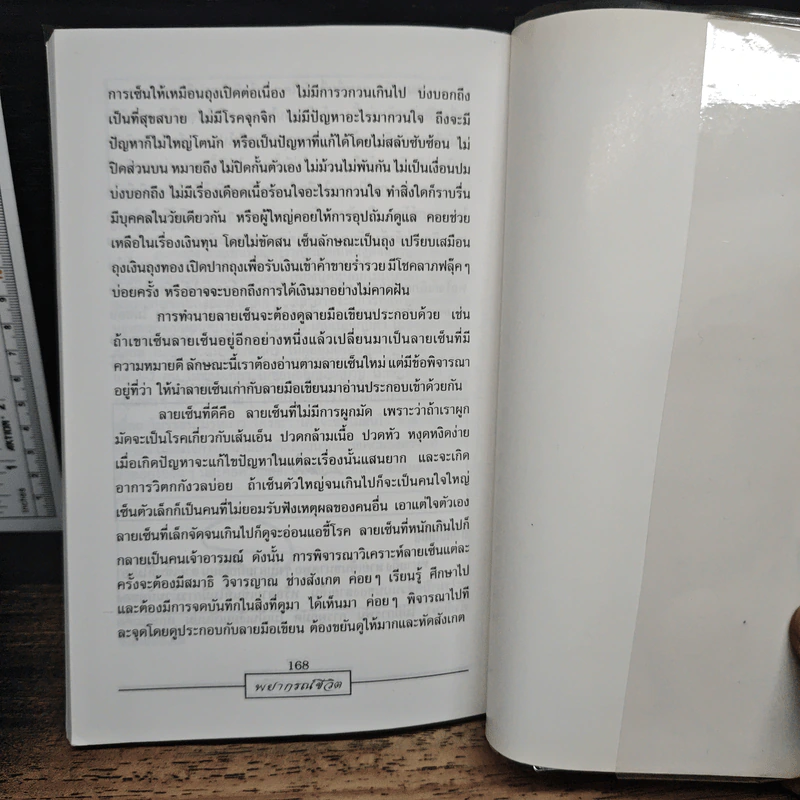 การเซ็นให้เหมือนถุงเปิดต่อเนื่อง ไม่มีการวกวนเกินไป บ่งบอกถึง
เป็นที่สุขสบาย ไม่มีโรคจุกจิก ไม่มีปัญหาอะไรมากวนใจ ถึงจะมี
ปัญหาก็ไม่ใหญ่โตนัก หรือเป็นปัญหาที่แก้ได้โดยไม่สลับซับซ้อน ไม่
ปิดส่วนบน หมายถึง ไม่ปิดกั้นตัวเอง ไม่ม้วนไม่พันกัน ไม่เป็นเงื่อนปม
บ่งบอกถึง ไม่มีเรื่องเดือดเนื้อร้อนใจอะไรมากวนใจ ทำสิ่งใดก็ราบรื่น
มีบุคคลในวัยเดียวกัน หรือผู้ใหญ่คอยให้การอุปถัมภ์ดูแล คอยช่วย
เหลือในเรื่องเงินทุน โดยไม่ขัดสน เซ็นลักษณะเป็นถุง เปรียบเสมือน
ถุงเงินถุงทอง เปิดปากถุงเพื่อรับเงินเข้าค้าขายร่ำรวย มีโชคลาภฟลุ๊คๆ
บ่อยครั้ง หรืออาจจะบอกถึงการได้เงินมาอย่างไม่คาดฝัน
การทำนายลายเซ็นจะต้องดูลายมือเขียนประกอบด้วย เช่น
ถ้าเขาเซ็นลายเซ็นอยู่อีกอย่างหนึ่งแล้วเปลี่ยนมาเป็นลายเซ็นที่มี
ความหมายดี ลักษณะนี้เราต้องอ่านตามลายเซ็นใหม่ แต่มีข้อพิจารณา
อยู่ที่ว่า ให้นำลายเซ็นเก่ากับลายมือเขียนมาอ่านประกอบเข้าด้วยกัน
ลายเซ็นที่ดีคือ ลายเซ็นที่ไม่มีการผูกมัด เพราะว่าถ้าเราผูก
มัดจะเป็นโรคเกี่ยวกับเส้นเอ็น ปวดกล้ามเนื้อ ปวดหัว หงุดหงิดง่าย
เมื่อเกิดปัญหาจะแก้ไขปัญหาในแต่ละเรื่องนั้นแสนยาก และจะเกิด
อาการวิตกกังวลบ่อย ถ้าเซ็นตัวใหญ่จนเกินไปก็จะเป็นคนใจใหญ่
เซ็นตัวเล็กก็เป็นคนที่ไม่ยอมรับฟังเหตุผลของคนอื่น เอาแต่ใจตัวเอง
ลายเซ็นที่เล็กจัดจนเกินไปก็ดูจะอ่อนแอขี้โรค ลายเซ็นที่หนักเกินไปก็
กลายเป็นคนเจ้าอารมณ์ ดังนั้น การพิจารณาวิเคราะห์ลายเซ็นแต่ละ
ครั้งจะต้องมีสมาธิ วิจารญาณ ช่างสังเกต ค่อยๆ เรียนรู้ ศึกษาไป
และต้องมีการจดบันทึกในสิ่งที่ดูมา ได้เห็นมา ค่อยๆ พิจารณาไปที
ละจุดโดยดูประกอบกับลายมือเขียน ต้องขยันดูให้มากและหัดสังเกต
168
พยากรณ์ชีวิต